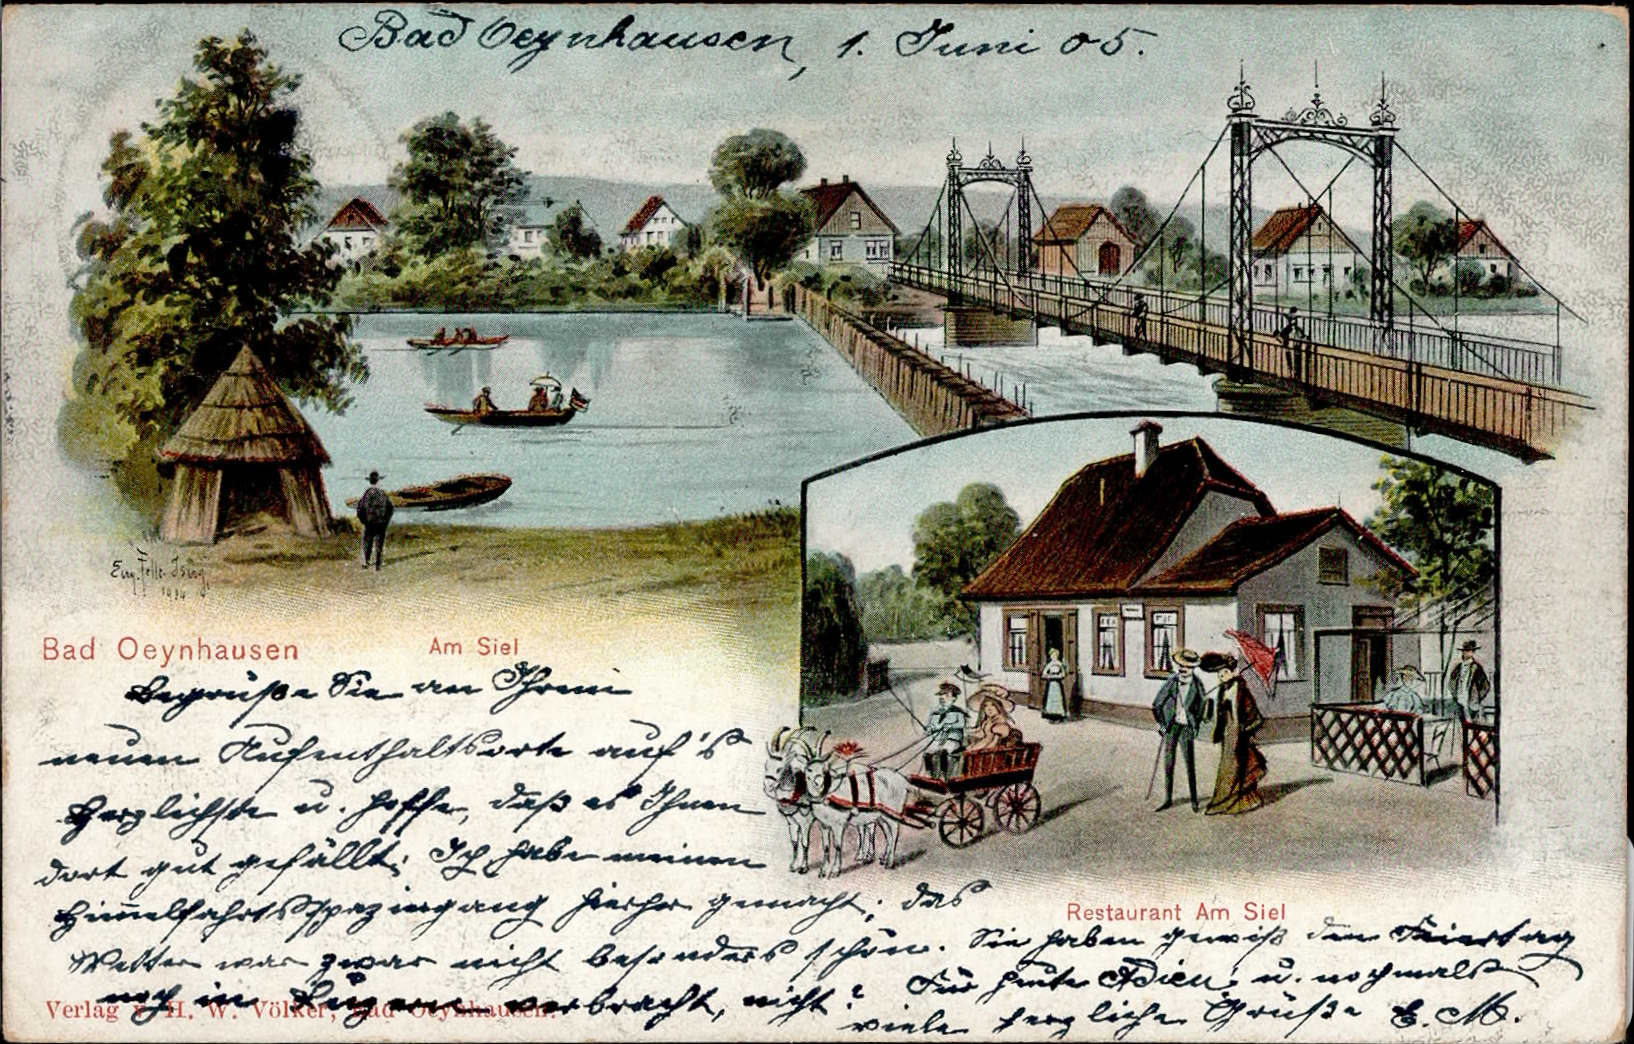 Bad Oeynhausen, 1. Juni 05.
Bad Oeynhausen
Am Siel
Begrüße Sie an Ihrem
neuen Aufenthaltsorte auf's
Herzlichste u. hoffe, daß es Ihnen
dort gut gefällt; Ich habe meinen
Himmelfahrtsspaziergang hierher gemacht; das
Wetter war zwar nicht besonders schön. Sie haben gewiß den Feiertag
noch in verbracht, nicht?
Für heute Adieu; u. nochmals
viele herzliche Grüße E. M.
Restaurant Am Siel
Verlag v. H. W. Völker, Bad Oeynhausen.
1904